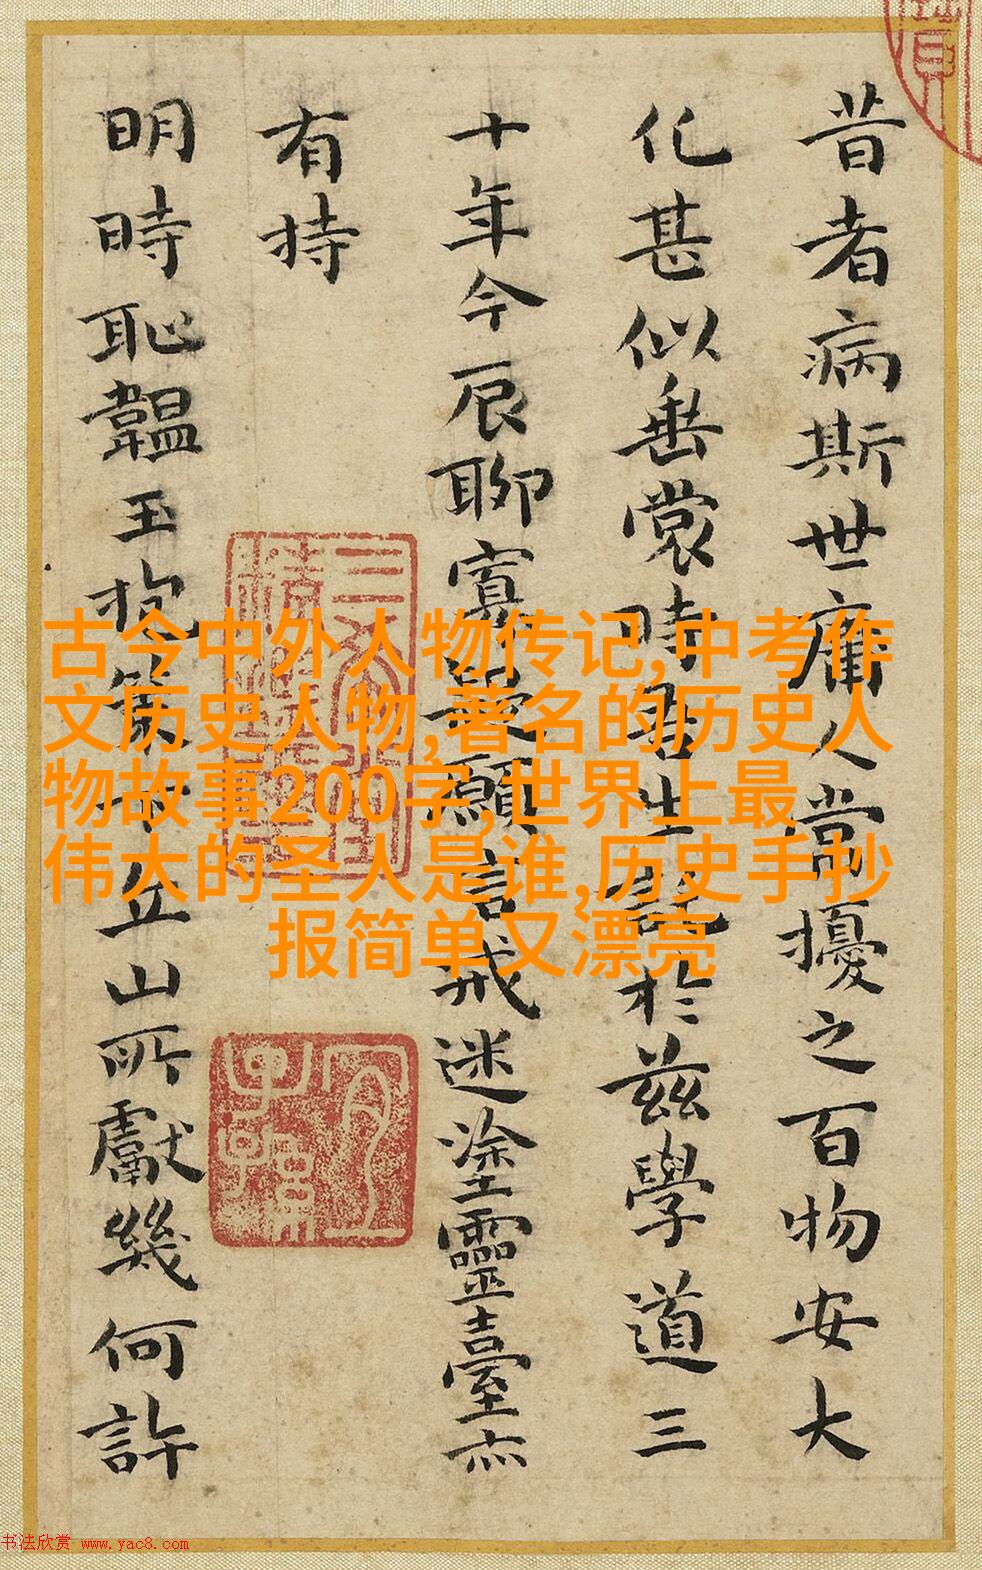 昔者病斯世庸人常擾之百物安大
化甚似垂裳時君生託於茲學道三
十年今辰聊寡憂願言戒迷塗靈臺亦
有持
明時恥韞玉抱策千丘山所獻幾何許
古今中外人物传记,中考作
文历史人物,著名的历史人
物故事200字,世界上最
伟大的圣人是谁,历史手抄
报简单又漂亮
书法欣赏 www.yac8.com